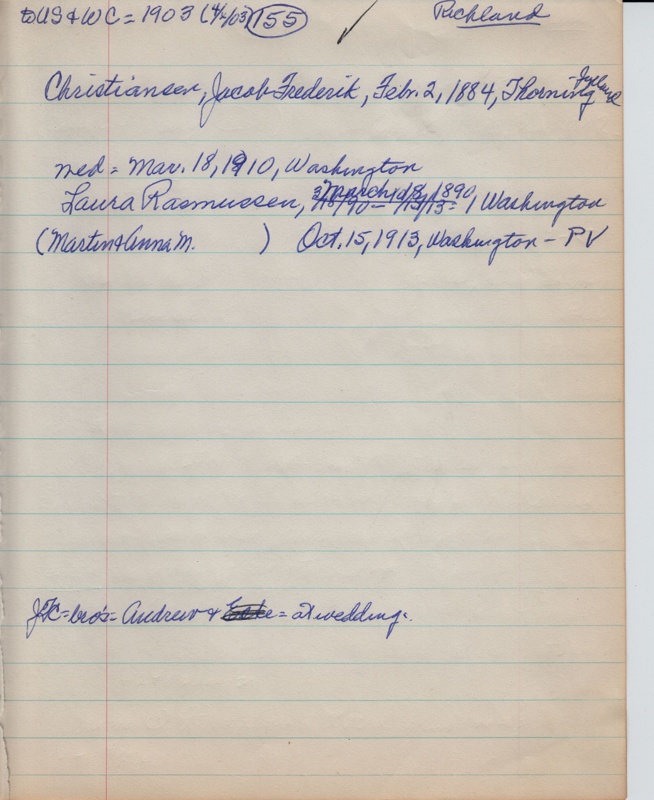 to US & WC = 1903 (4/2/03) 155 Richland
Christiansen, Jacob Frederik, Febr. 2, 1884, Thorning Jylland
med = Mar. 18, 1910, Washington
Laura Rasmussen, March 18, 1890, Washington
(Martin & Anna M. ) Oct. 15, 1913, Washington - PV
JFC = bro's = Andrew & = at wedding.